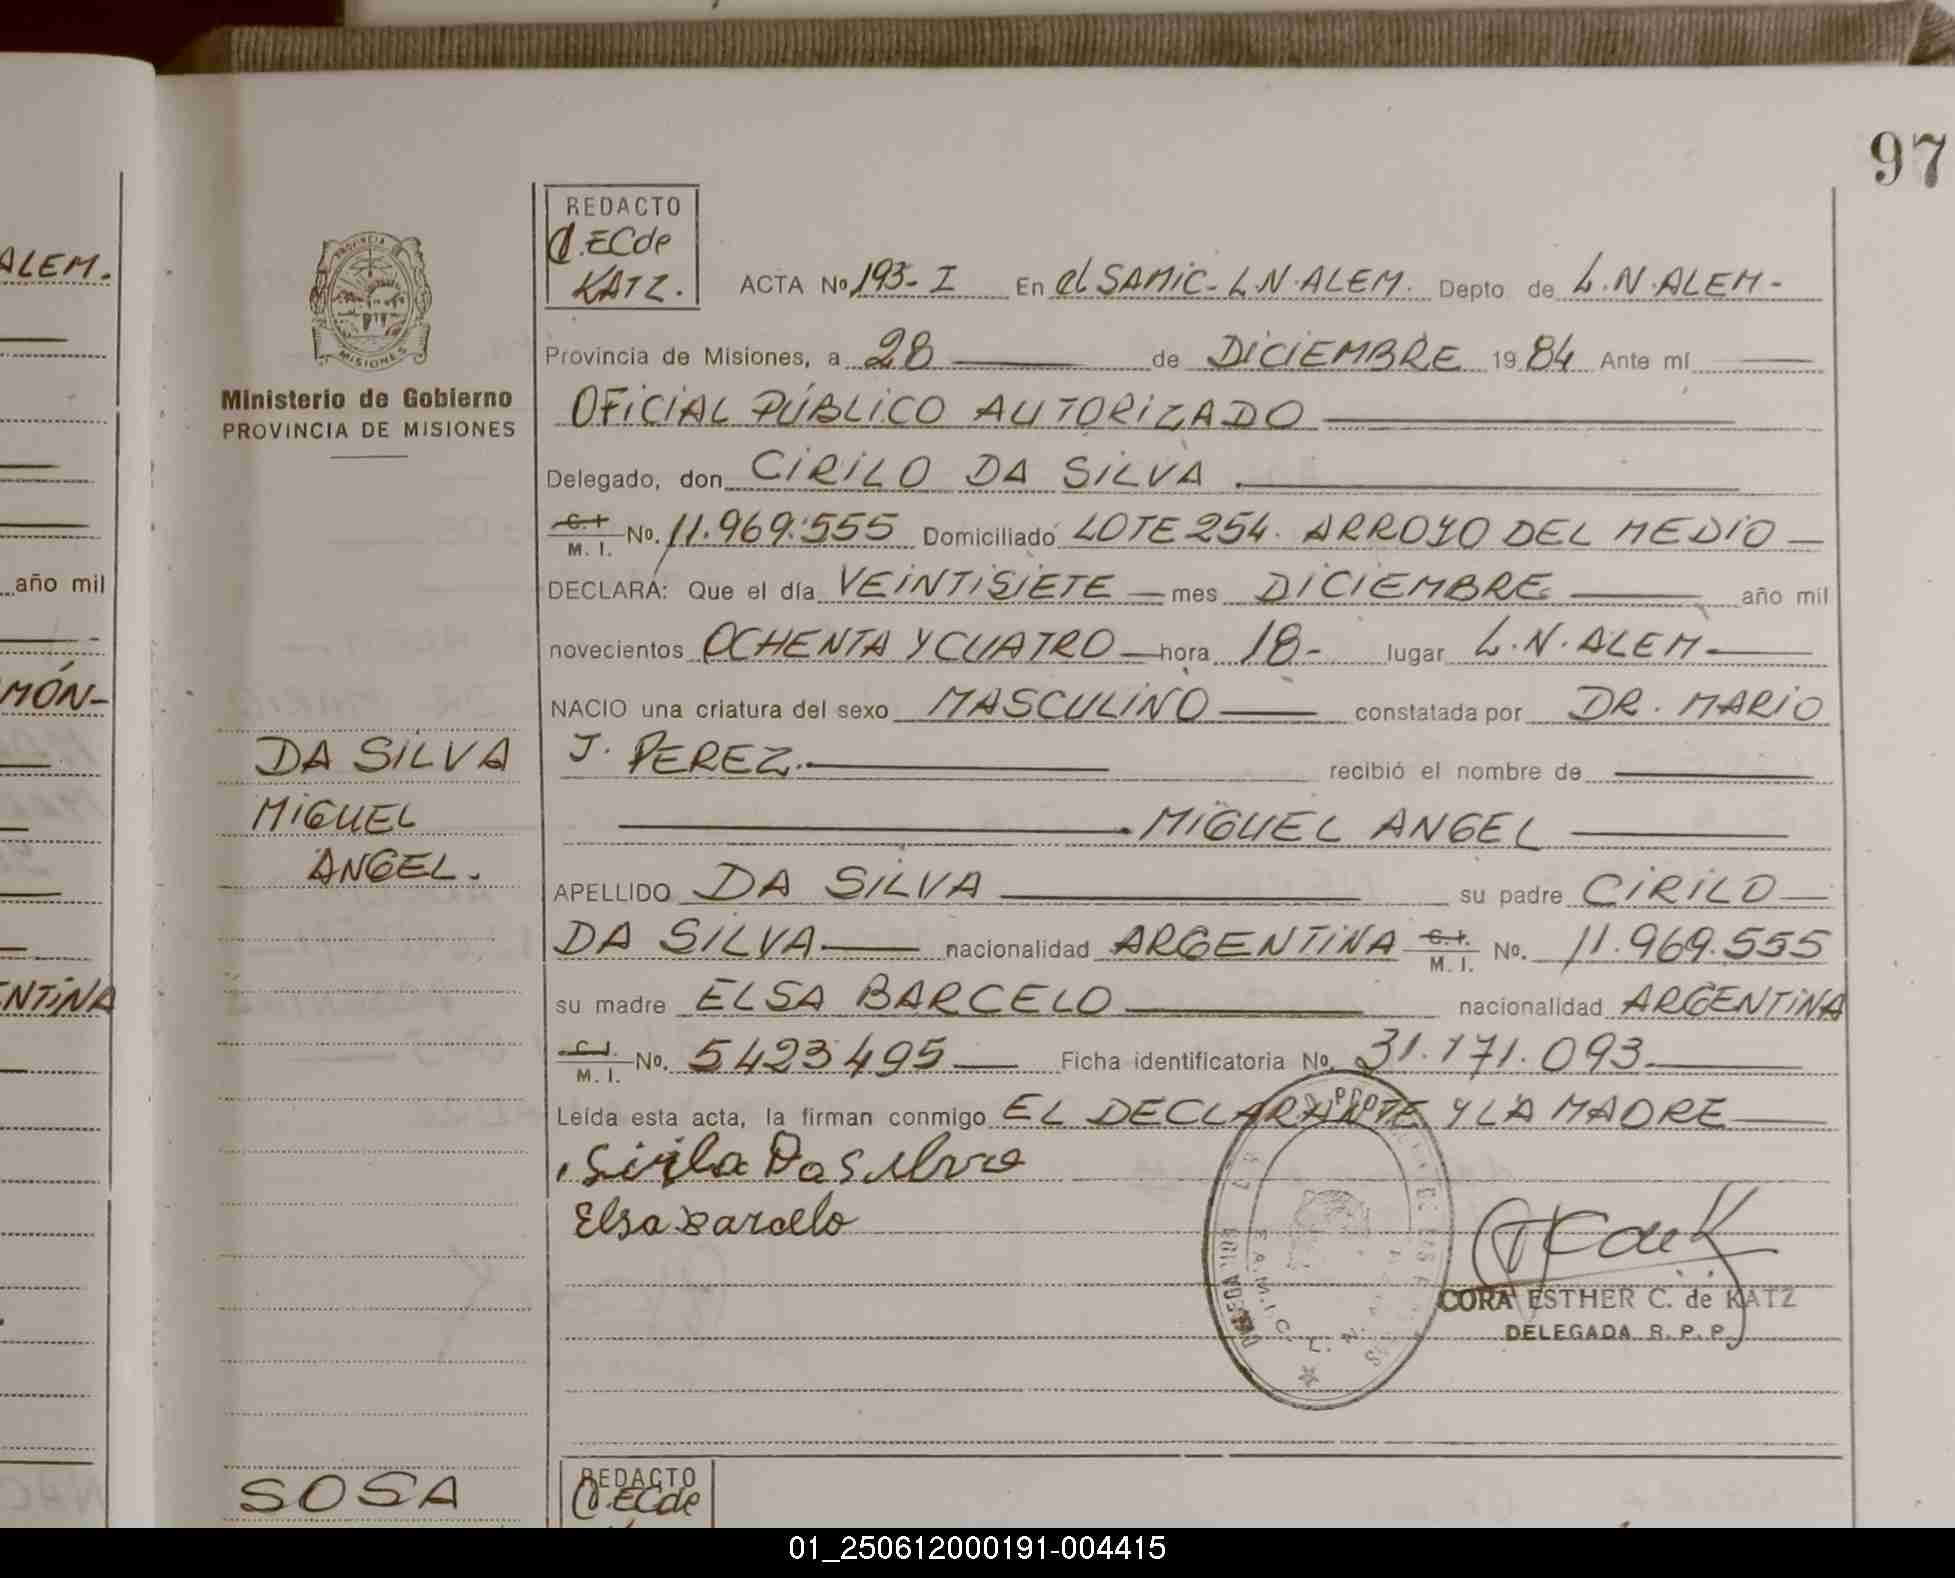 97
ALEM.
año mil
MÓN-
ENTINA
Ministerio de Gobierno
PROVINCIA DE MISIONES
DA SILVA
MIGUEL
ANGEL.
REDACTO
C.ECde
KATZ.
ACTA Nº 193-I En el SAMIC-L.N.ALEM. Depto de L.N.ALEM-
Provincia de Misiones, a 28 de DICIEMBRE 1984 Ante mí
OFICIAL PÚBLICO AUTORIZADO
Delegado, don CIRILO DA SILVA
C.I. M. I. Nº. 11.969.555 Domiciliado LOTE 254. ARROYO DEL MEDIO
DECLARA: Que el día VEINTISIETE mes DICIEMBRE año mil
novecientos OCHENTA Y CUATRO hora 18- lugar L.N.ALEM-
NACIO una criatura del sexo MASCULINO constatada por DR. MARIO
J. PEREZ. recibió el nombre de
MIGUEL ANGEL
APELLIDO DA SILVA su padre CIRILO
DA SILVA nacionalidad ARGENTINA C.I. M. I. Nº. 11.969.555
su madre ELSA BARCELO nacionalidad ARGENTINA
C.I. M. I. Nº. 5423495 Ficha identificatoria Nº 31.171.093
Leída esta acta, la firman conmigo EL DECLARANTE Y LA MADRE
Sirilo Da Silva
Elsa Barcelo
S.A.M.I.C. L. N.
CORA ESTHER C. de KATZ
DELEGADA R. P. P.
SOSA
REDACTO
C.ECde
01_250612000191-004415